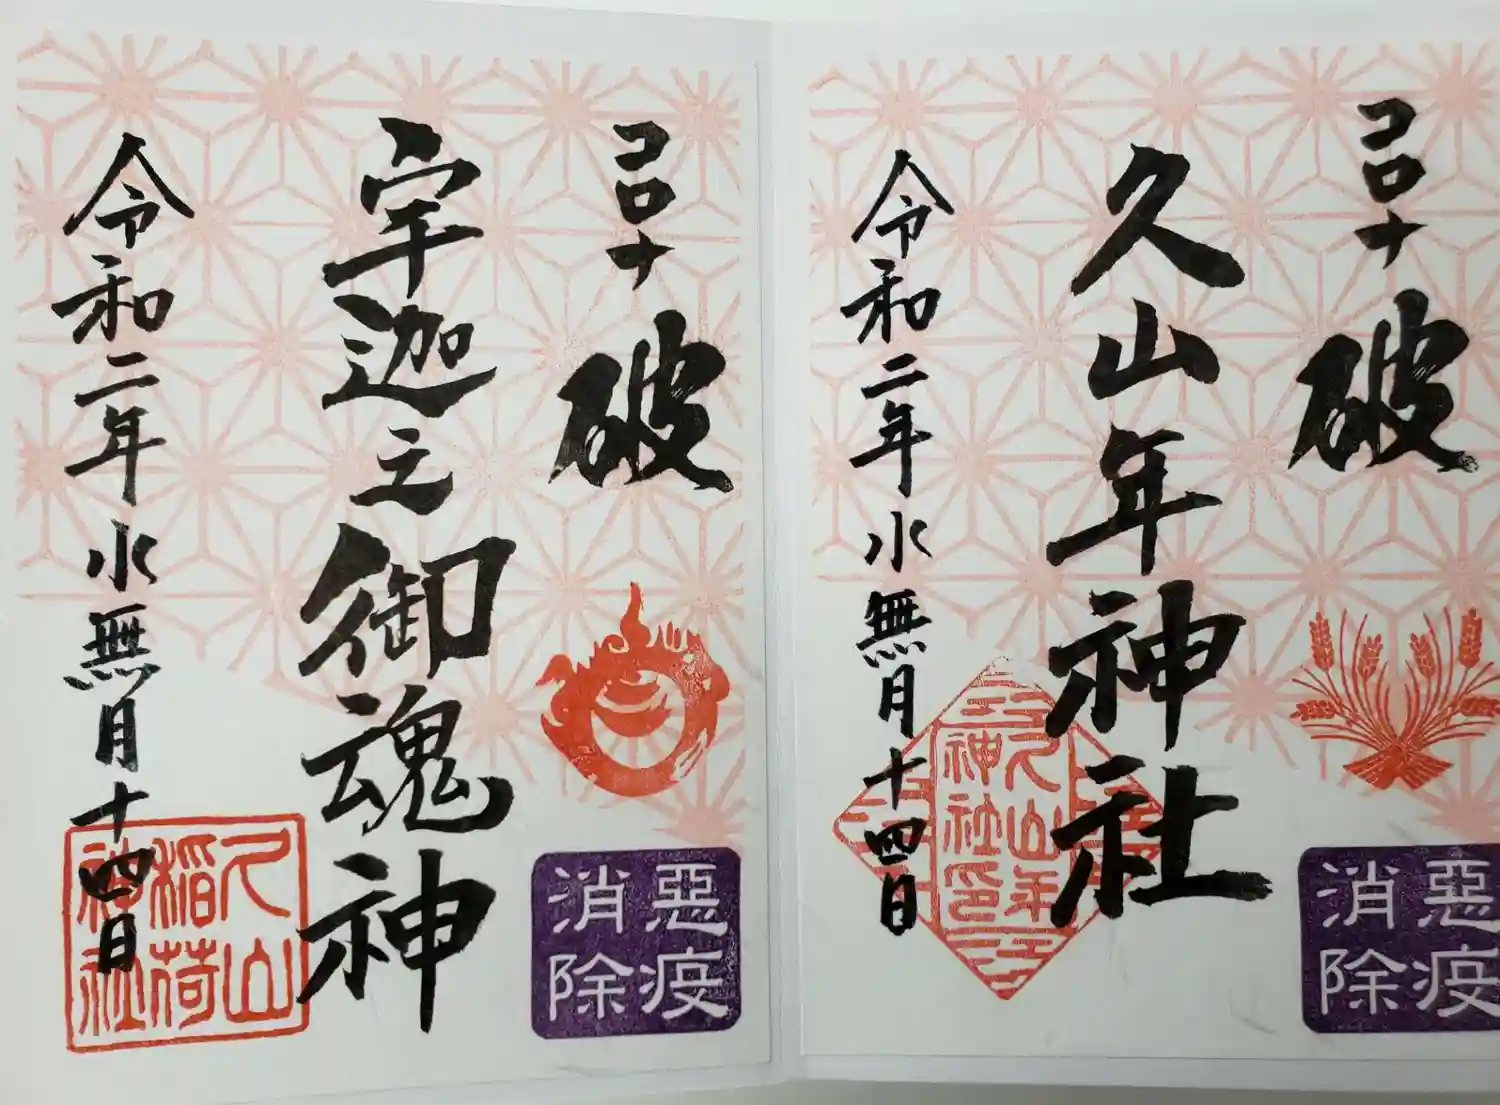 コロナ 破
久山年神社
令和二年水無月十四日
惡疫
消除
久山年
神社印
コロナ 破
宇迦之御魂神
令和二年水無月十四日
惡疫
消除
久山
稲荷
神社